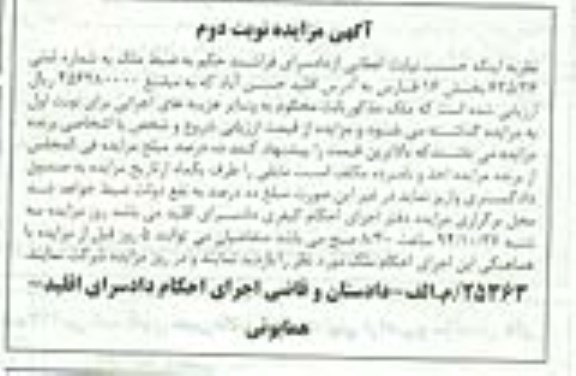 آگهی مزایده نوبت دوم
نظر به اینکه حسب نیابت اعطایی از دادسرای فراشبند حکم به ضبط ملک به شماره ثبتی
بخش ۱۶ فارس به آدرس اقلید حسن آباد که به مبلغ ریال
ارزیابی شده است که ملک مذکور بابت محکوم به و سایر هزینه های اجرایی برای نوبت اول
به مزایده گذاشته می شود و مزایده از قیمت ارزیابی شروع و شخص یا اشخاصی برنده
مزایده می باشند که بالاترین قیمت را پیشنهاد کنند ده درصد مبلغ مزایده فی المجلس
از برنده مزایده اخذ و نامبرده مکلف است مابقی را ظرف یکماه از تاریخ مزایده به صندوق
دادگستری واریز نماید در غیر این صورت مبلغ ده درصد به نفع دولت ضبط خواهد شد
محل برگزاری مزایده دفتر اجرای احکام کیفری دادسرای اقلید می باشد روز مزایده سه
شنبه ۹۴/۱۰/۲۷ ساعت ۸:۳۰ صبح می باشد متقاضیان می توانند ۵ روز قبل از مزایده با
هماهنگی این اجرای احکام ملک مورد نظر را بازدید نمایند و در روز مزایده شرکت نمایند.
۲۵۳۶۳/م.الف-دادستان و قاضی اجرای احکام دادسرای اقلید-
همایونی